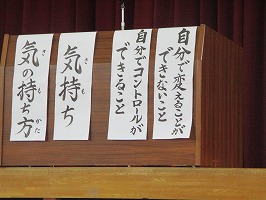 自分で変えることが
できないこと
自分でコントロールが
できること
気持ち
きも
気の持ち方
きもかた